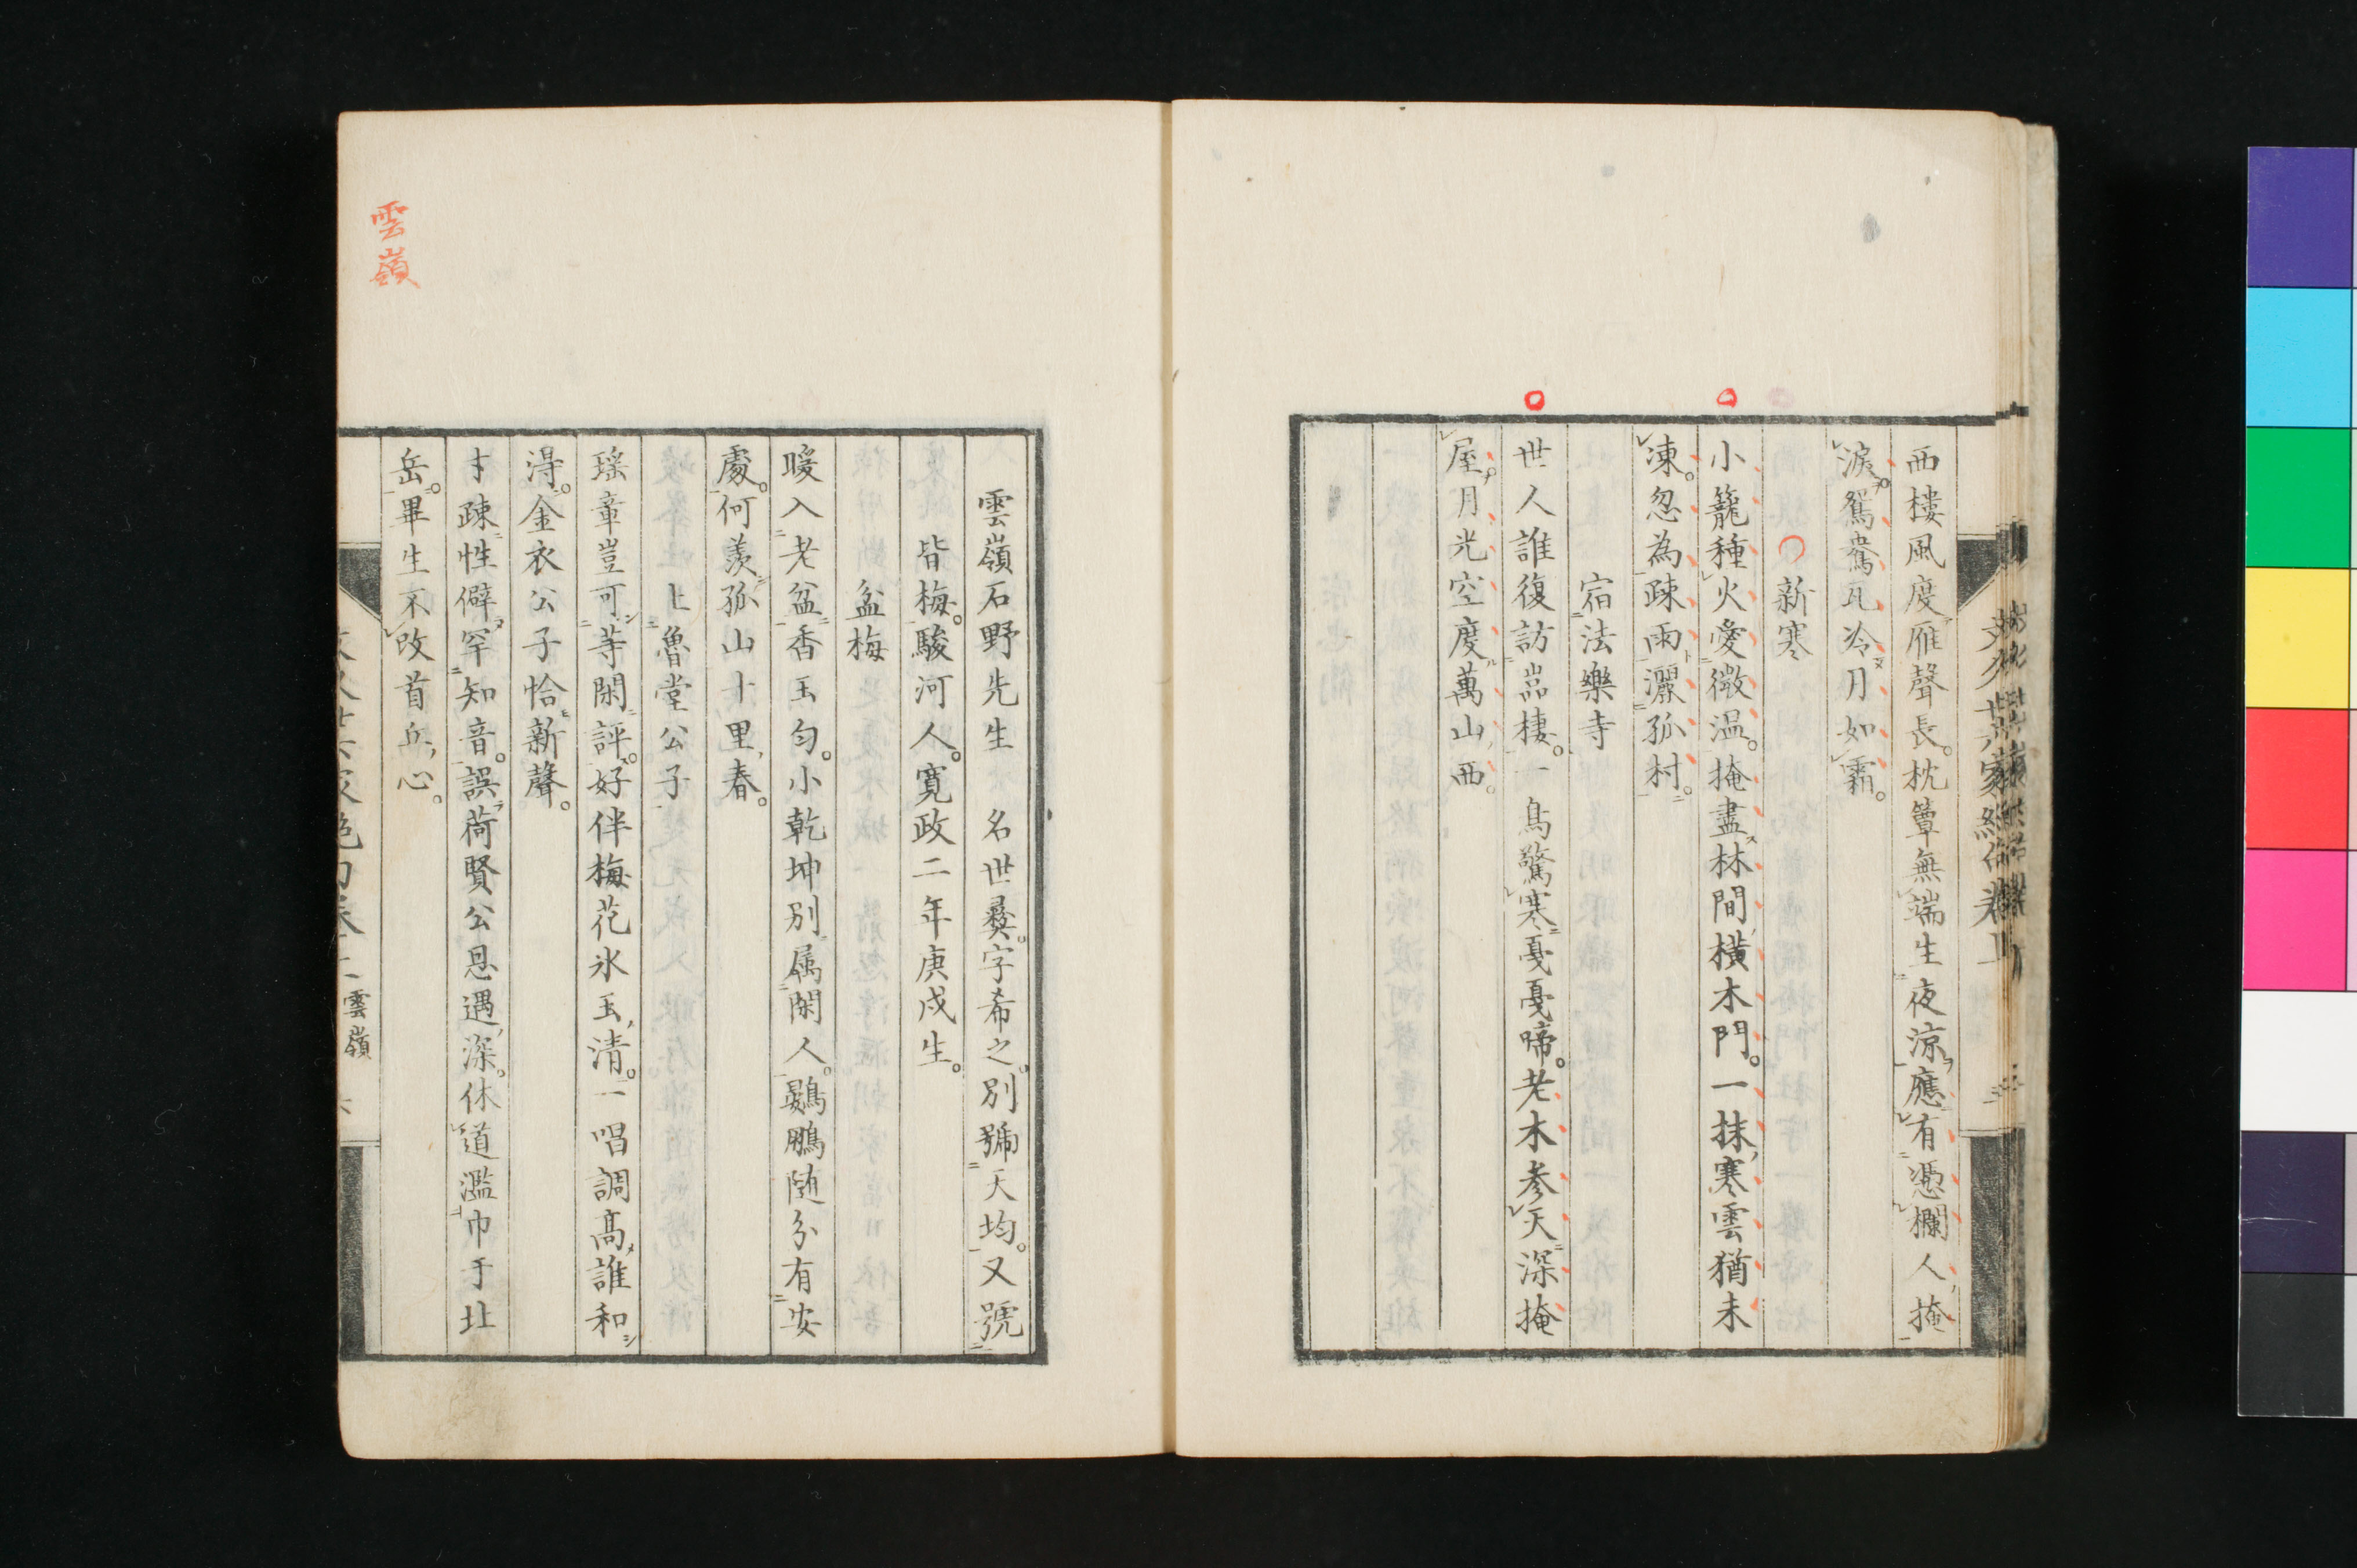 西樓風度雁聲長。枕簟無端生夜涼。應有憑欄人掩
淚。鴛鴦瓦冷月如霜。
新寒
小籠種火愛微温。掩盡林間横木門。一抹寒雲猶未
凍。忽為疎雨灑孤村。
宿法樂寺
世人誰復訪嵓棲。一鳥驚寒戛戛啼。老木参天深掩
屋。月光空度萬山西。
雲嶺
雲嶺石野先生 名世彜。字希之。別號天均。又號
皆梅。駿河人。寛政二年庚戌生。
盆梅
暖入老盆香玉匀。小乾坤別属閑人。鷃鵬随分有安
處。何羨孤山十里春。
上魯堂公子
瑶章豈可等閑評。好伴梅花氷玉清。一唱調高誰和
淂。金衣公子恰新聲。
才疎性僻罕知音。誤荷賢公恩遇深。休道濫巾于北
岳。畢生不改首丘心。
雲嶺